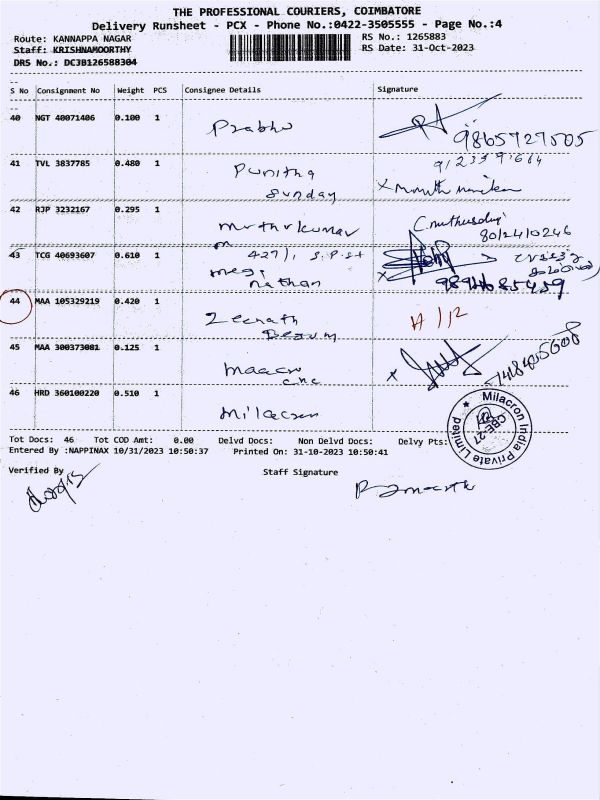 THE PROFESSIONAL COURIERS, COIMBATORE
Delivery Runsheet - PCX - Phone No.:0422-3505555 - Page No.:4
Route: KANNAPPA NAGAR RS No.: 1265883
Staff: KRISHNAMOORTHY RS Date: 31-Oct-2023
DRS No.: DCJB126588304
S No Consignment No Weight PCS Consignee Details Signature
40 NGT 40071406 0.100 1 Prabhu 9865727505
41 TVL 3837785 0.480 1 Punitha
Sunday
42 RJP 3232167 0.295 1 Muthukumar
8012410246
43 TCG 40693607 0.610 1 427/1 S.P.St
Megi
nathan 9894685459
44 MAA 105329219 0.420 1 Zeenath
Begum
45 MAA 300373081 0.125 1 Maacro
cnc 7418405608
46 HRD 360100220 0.510 1 Milacron
Milacron India Private Limited
CBE-27
Tot Docs: 46 Tot COD Amt: 0.00 Delvd Docs: Non Delvd Docs: Delvy Pts:
Entered By :NAPPINAX 10/31/2023 10:50:37 Printed On: 31-10-2023 10:50:41
Verified By Staff Signature